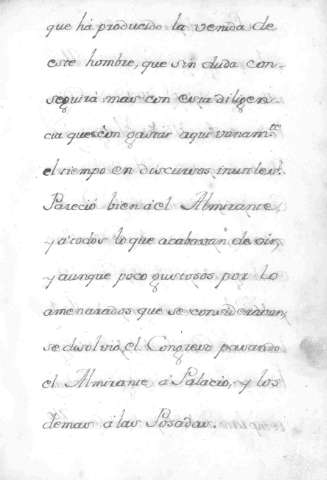 que há producido la venida de
este hombre, que sin duda con-
seguirá mas con esta diligen
cia que con gastar aqui vanam.te
el tiempo en discursos inutiles.
Pareció bien á el Almirante,
y á todos lo que acababan de oir,
y aunque poco gustosos por lo
amenazados que se consideraban,
se disolvió el Congreso pasando
el Almirante á Palacio, y los
demas á las Posadas.